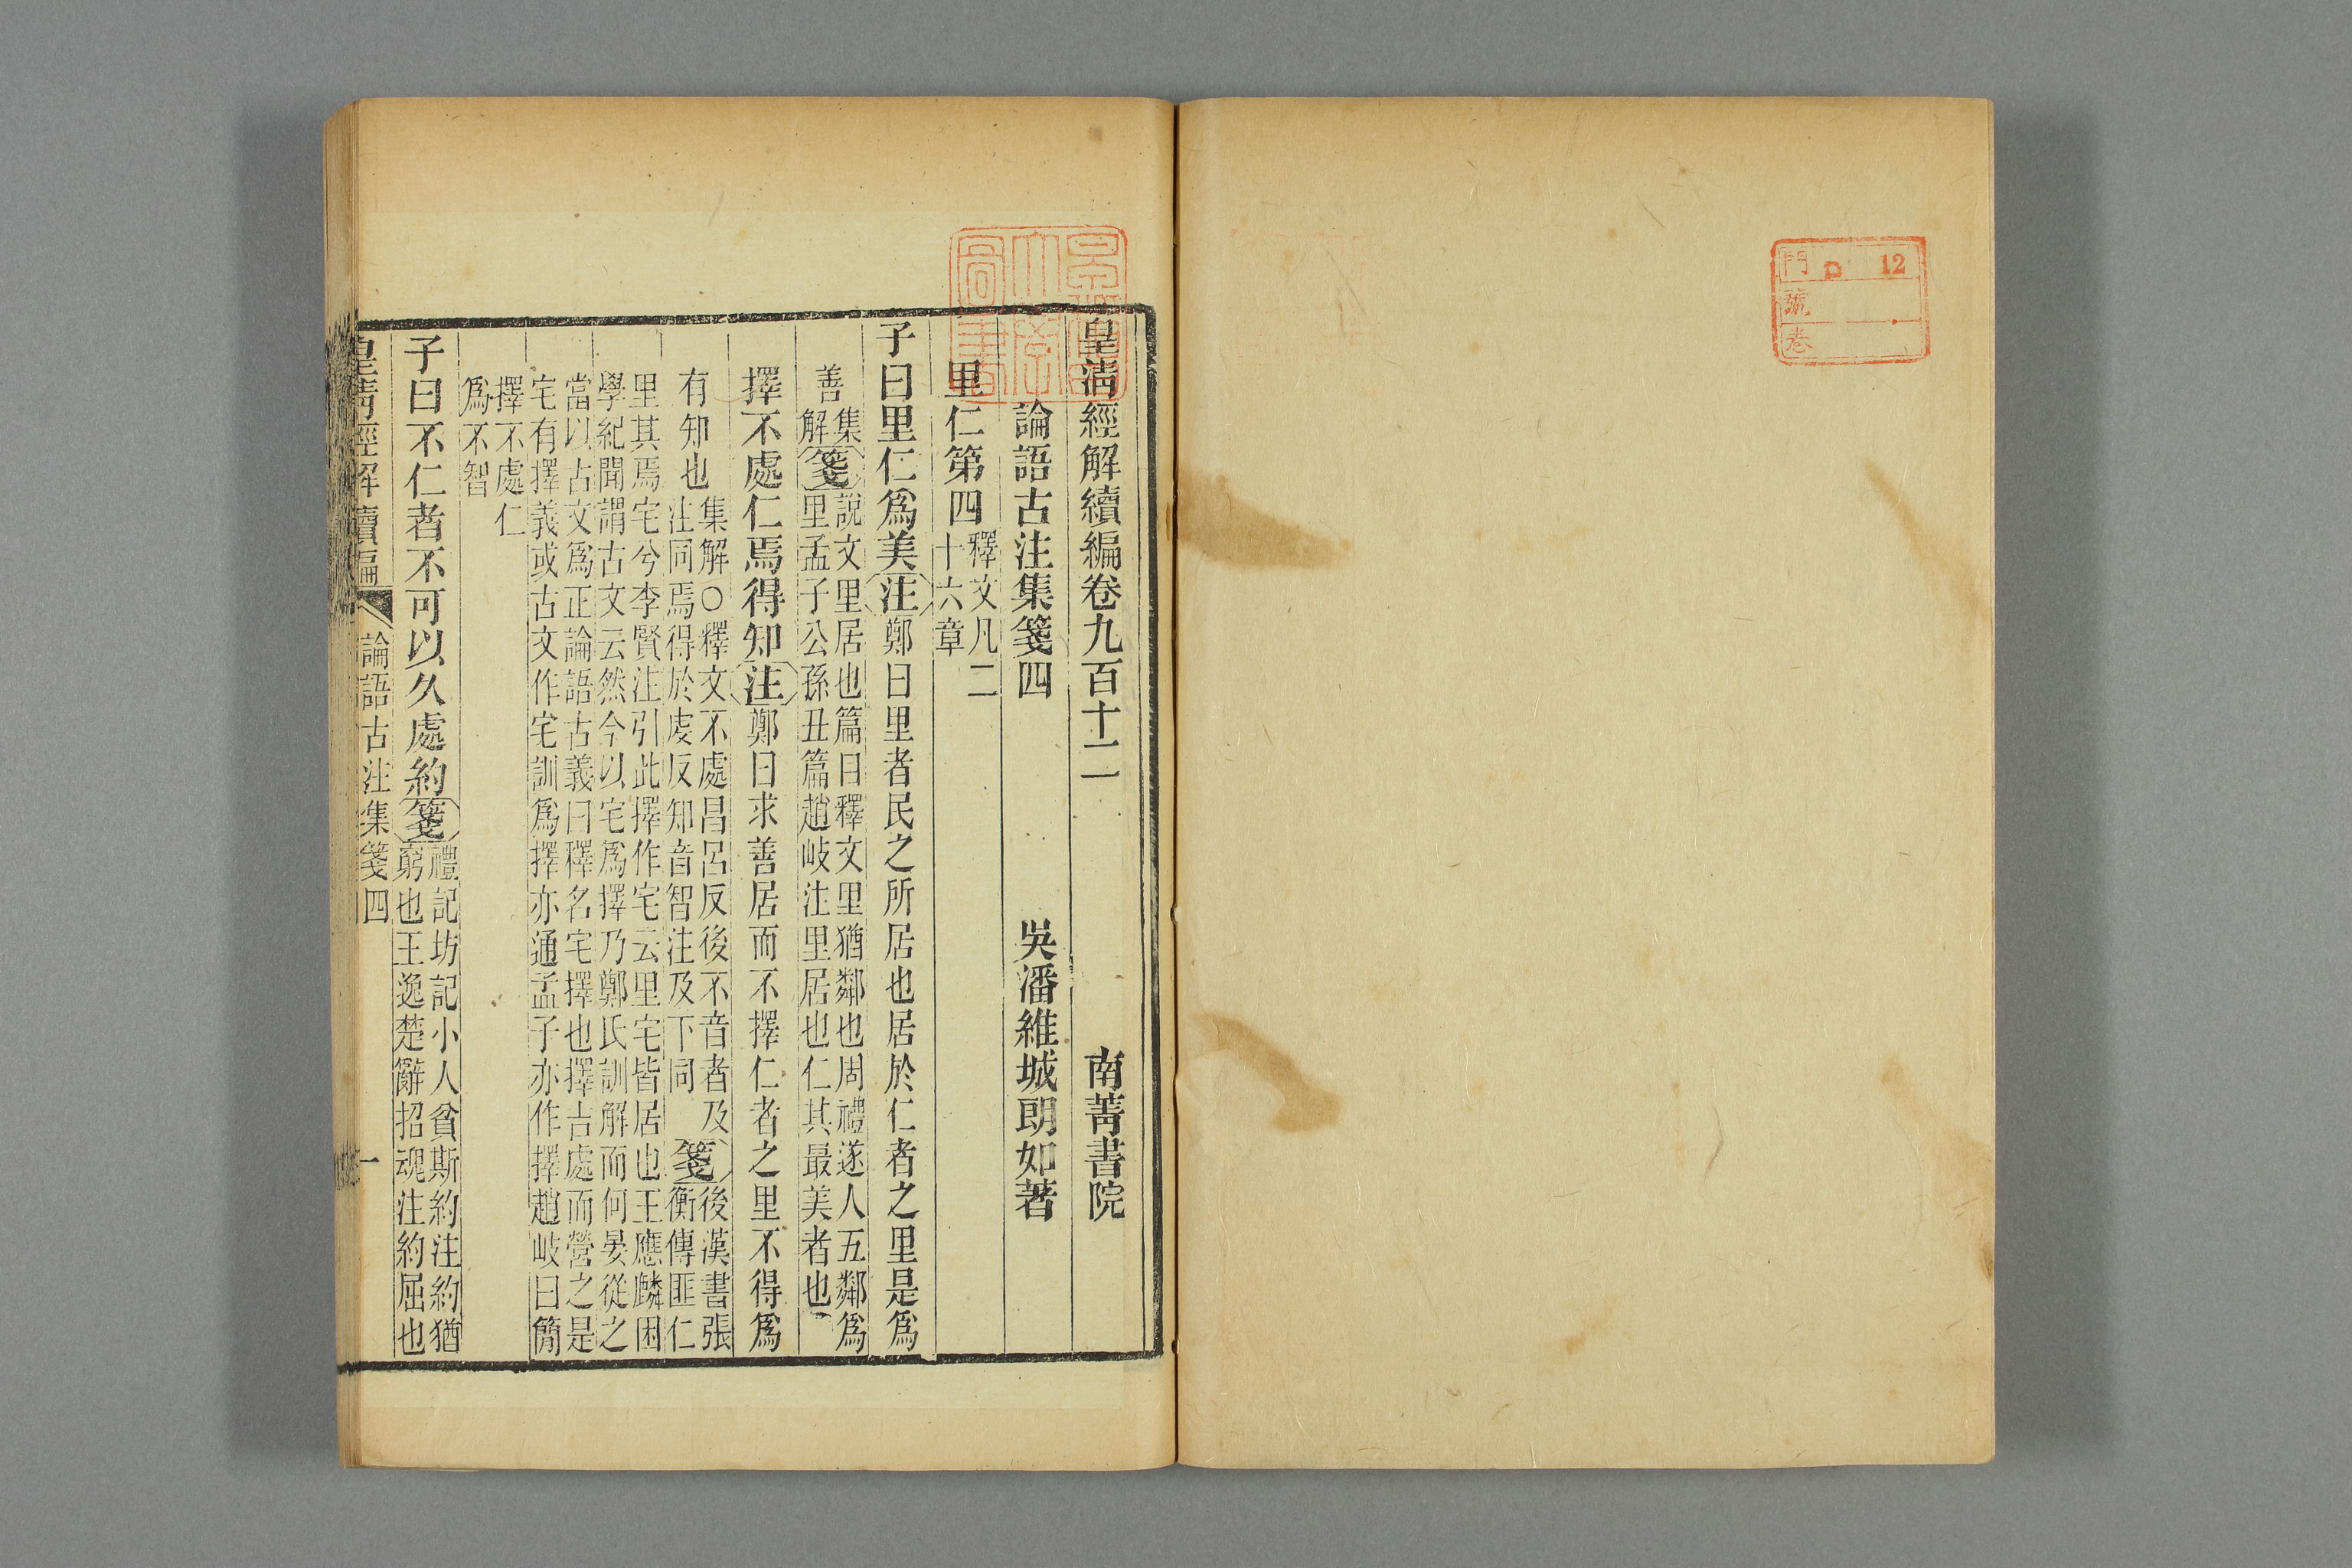 門 口 12
號
卷
皇清經解續編卷九百十二 南菁書院
論語古注集箋四 吳潘維城朗如著
里仁第四 釋文凡二
十六章
子曰里仁爲美 注 鄭曰里者民之所居也居於仁者之里是爲
善 集解 箋 說文里居也篇曰釋文里猶鄰也周禮遂人五鄰爲
里孟子公孫丑篇趙岐注里居也仁其最美者也
擇不處仁焉得知 注 鄭曰求善居而不擇仁者之里不得爲
有知也 集解○釋文不處昌呂反後不音者及
注同焉得於虔反知音智注及下同 箋 後漢書張
衡傳匪仁
里其焉宅兮李賢注引此擇作宅云里宅皆居也王應麟困
學紀聞謂古文云然今以宅爲擇乃鄭氏訓解而何晏從之
當以古文爲正論語古義曰釋名宅擇也擇吉處而營之是
宅有擇義或古文作宅訓爲擇亦通孟子亦作擇趙岐曰簡
擇不處仁
爲不智
子曰不仁者不可以久處約 箋 禮記坊記小人貧斯約注約猶
窮也王逸楚辭招魂注約屈也
皇淸經解續編 論語古注集箋四 一